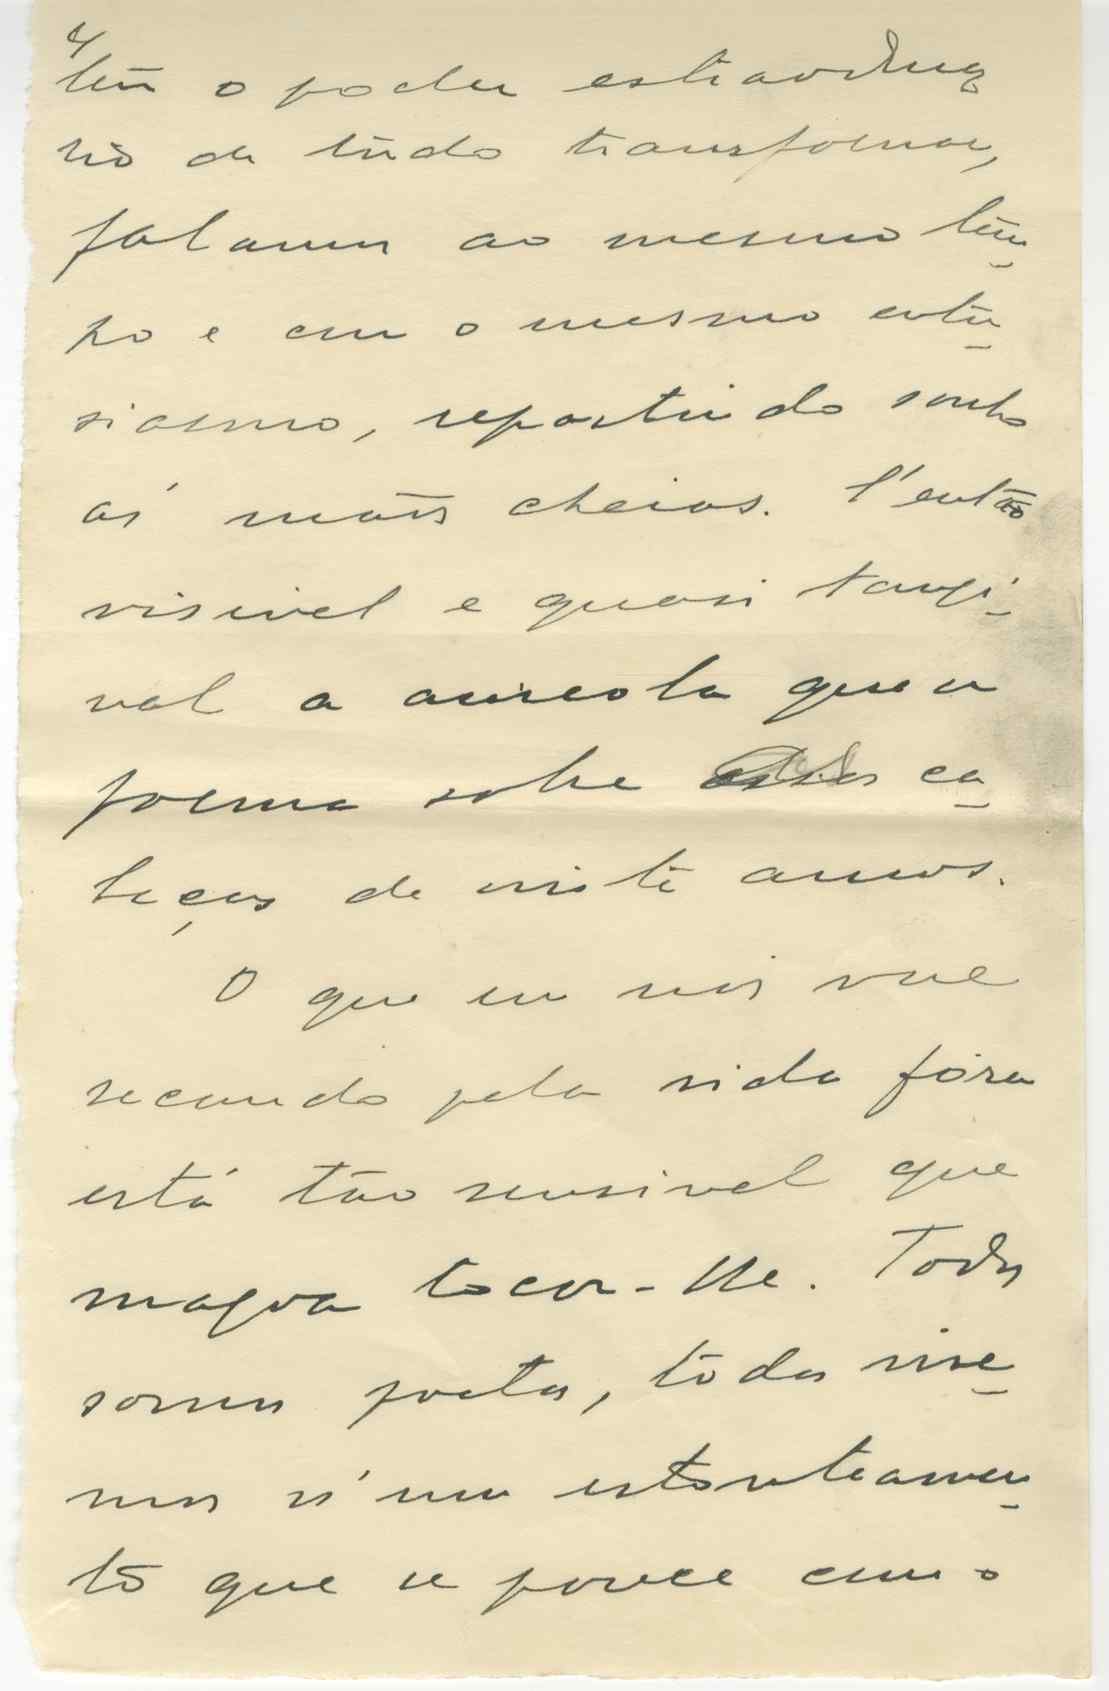 4
tem o poder estraordina
rio de tudo transformar,
falamos ao mesmo tem-
po e com o mesmo entu-
siasmo, repartindo sonho
ás mãos cheias. É então
visivel e quasi tangi-
vel a aureola que se
forma sobre essas ca-
beças de vinte annos.
O que em nós vive
recuando pela vida fóra
está tão sensivel que
magoa tocar-lhe. Todos
somos poetas, todos vive-
mos n'um estonteamen-
to que se parece com o